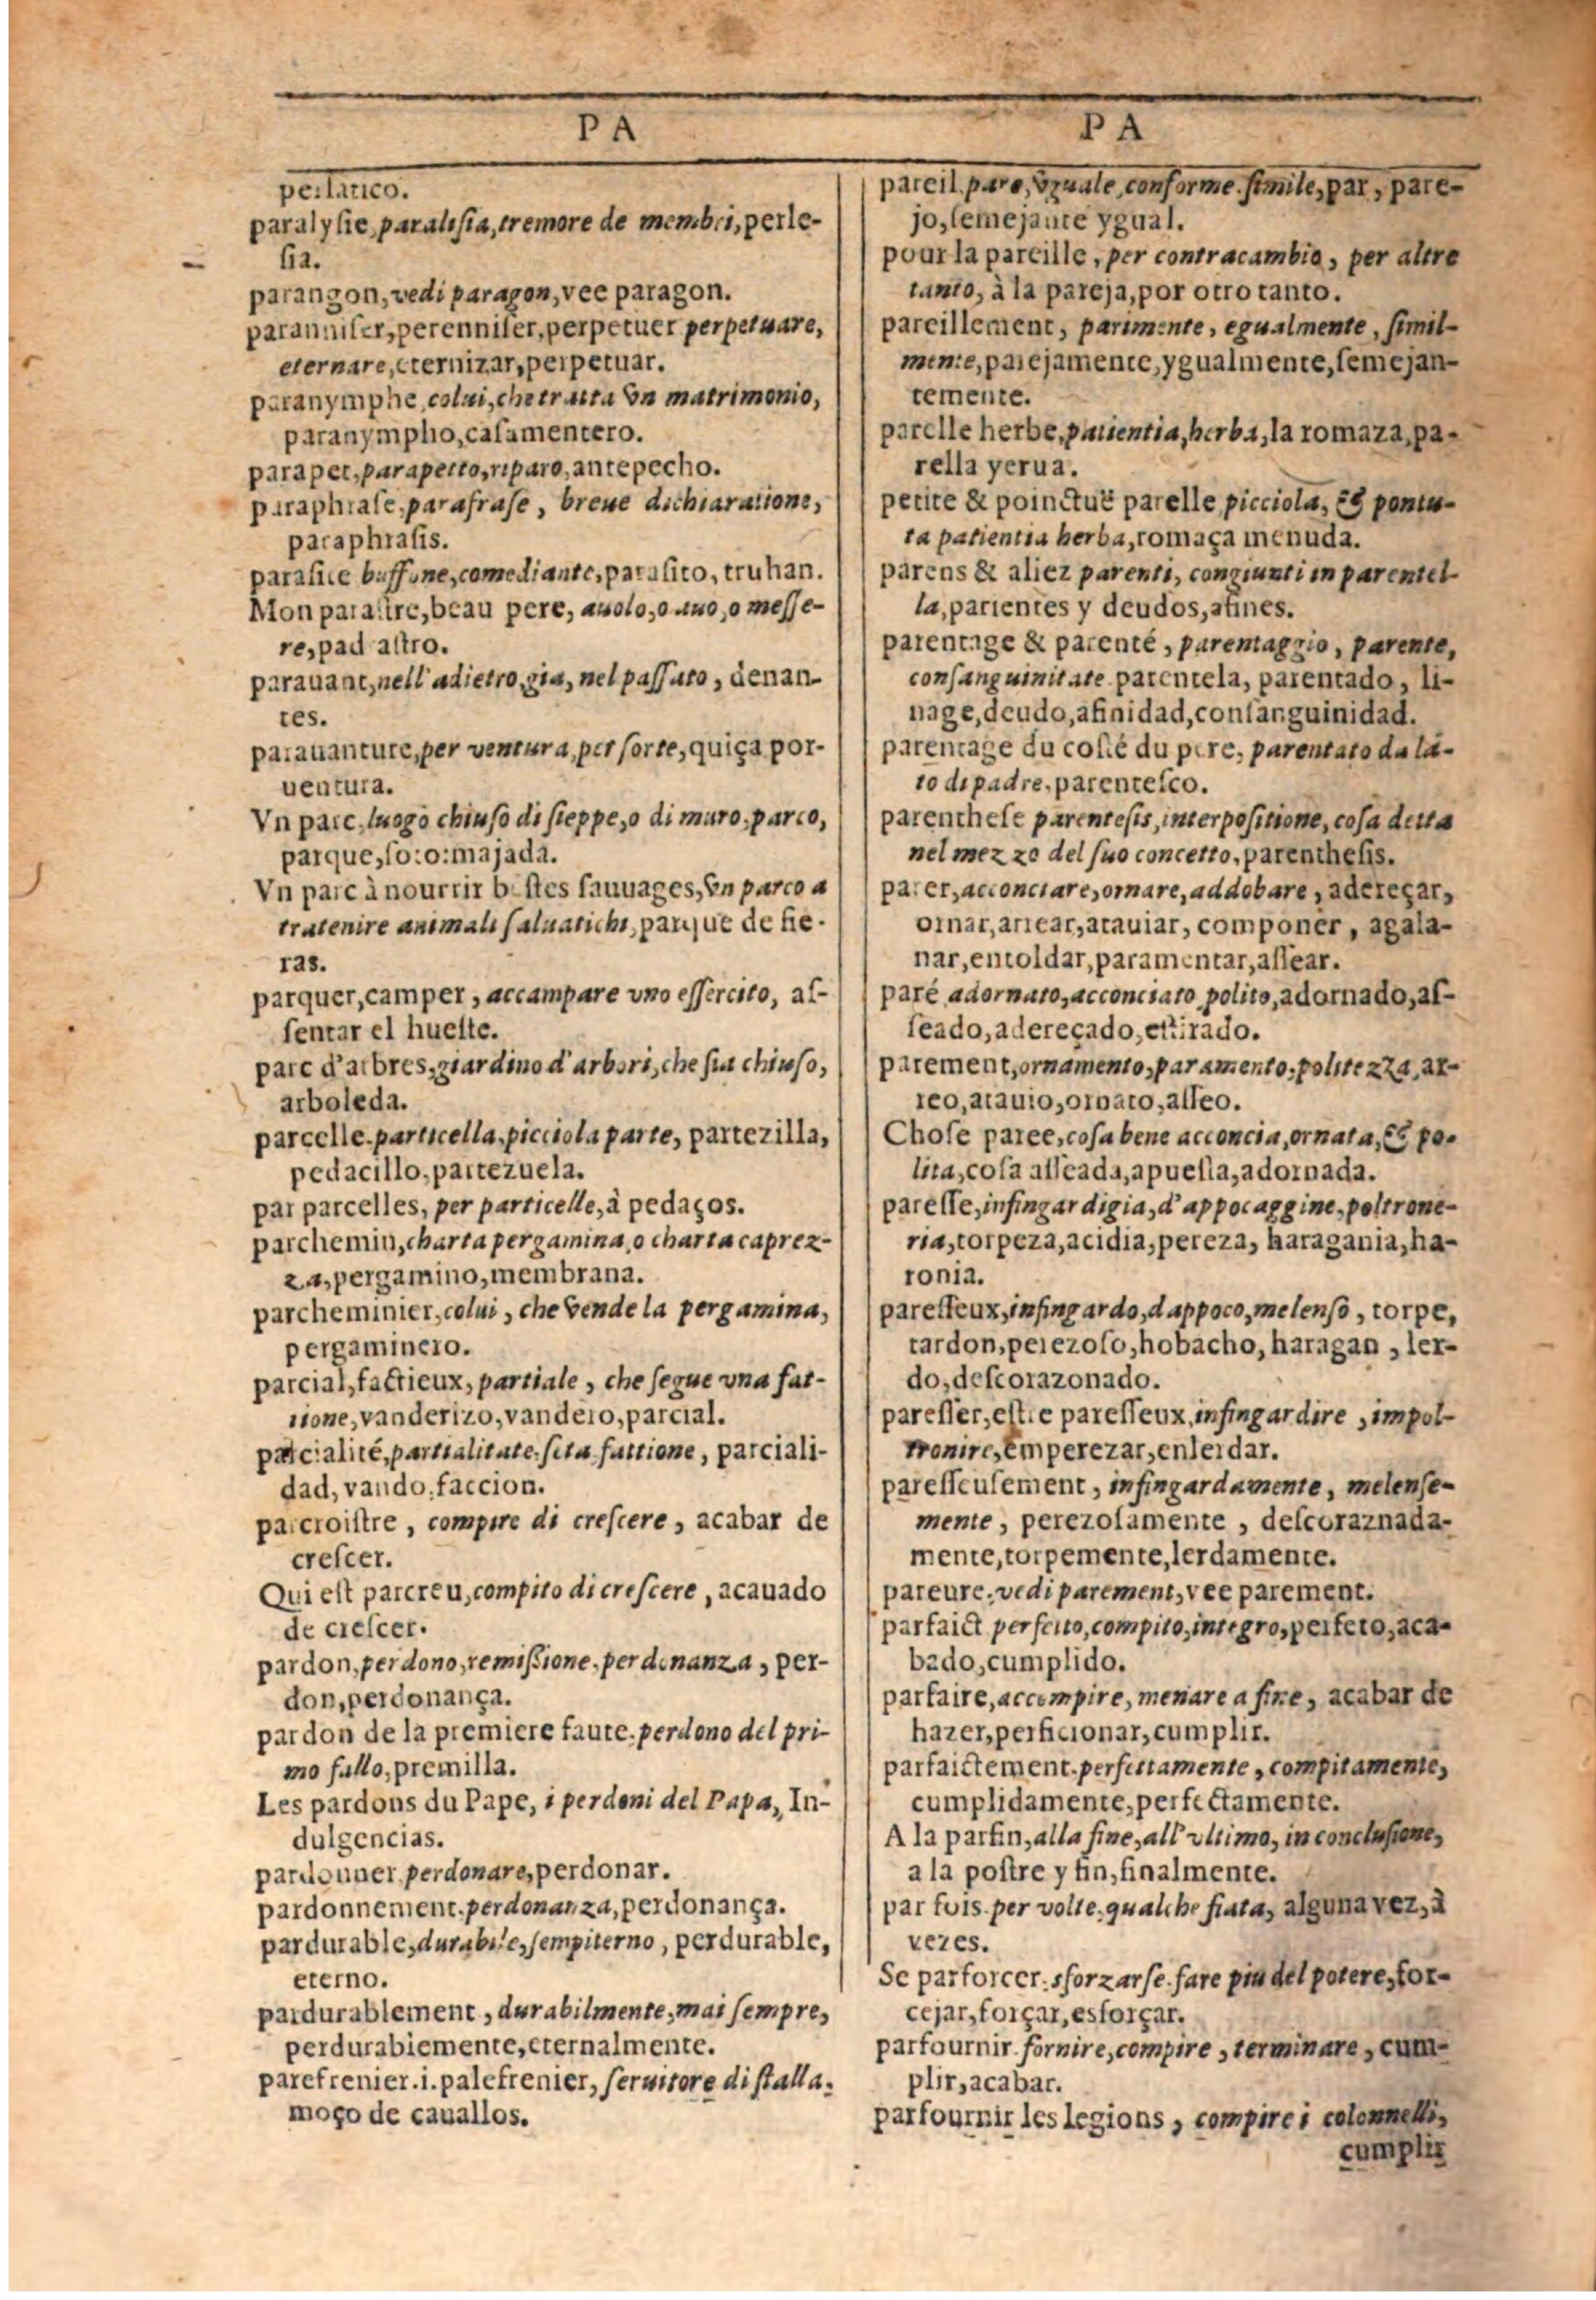 PA
perlatico.
paralysie, paralisia, tremore de membri, perle-
sia.
parangon, vedi paragon, vee paragon.
paranniser, perenniser, perpetuer perpetuare,
eternare, eternizar, perpetuar.
paranymphe, colui, che tratta vn matrimonio,
paranympho, casamentero.
parapet, parapetto, riparo, antepecho.
paraphrase, parafrase, breue dichiaratione,
paraphrasis.
parasite buffone, comediante, parasito, truhan.
Mon parastre, beau pere, auolo, o auo, o messe-
re, pad astro.
parauant, nell'adietro, gia, nel passato, denan-
tes.
parauanture, per ventura, per sorte, quiça por-
uentura.
Vn parc, luogo chiuso di sieppe, o di muro, parco,
parque, soto: majada.
Vn parc à nourrir bestes sauuages, vn parco a
tratenire animali saluatichi, parque de fie-
ras.
parquer, camper, accampare vno essercito, as-
sentar el hueste.
parc d'arbres, giardino d'arbori, che sia chiuso,
arboleda.
parcelle, particella, picciola parte, partezilla,
pedacillo, partezuela.
par parcelles, per particelle, à pedaços.
parchemin, charta pergamina, o charta caprez-
za, pergamino, membrana.
parcheminier, colui, che vende la pergamina,
pergaminero.
parcial, factieux, partiale, che segue vna fat-
tione, vanderizo, vandero, parcial.
parcialité, partialitate, seta fattione, parciali-
dad, vando, faccion.
parcroistre, compire di crescere, acabar de
crescer.
Qui est parcreu, compito di crescere, acauado
de crescer.
pardon, perdono, remissione, perdonanza, per-
don, perdonança.
pardon de la premiere faute. perdono del pri-
mo fallo, premilla.
Les pardons du Pape, i perdoni del Papa, In-
dulgencias.
pardonner, perdonare, perdonar.
pardonnement. perdonanza, perdonança.
pardurable, durabile, sempiterno, perdurable,
eterno.
pardurablement, durabilmente, mai sempre,
perdurabiemente, eternalmente.
parefrenier. i. palefrenier, seruitore di stalla,
moço de cauallos.
PA
pareil. pare, vguale, conforme. simile, par, pare-
jo, semejante ygual.
pour la pareille, per contracambio, per altre
tanto, à la pareja, por otro tanto.
pareillement, parimente, egualmente, simil-
mente, parejamente, ygualmente, semejan-
temente.
parelle herbe, patientia, herba, la romaza, pa-
rella yerua.
petite & poinctuë parelle picciola, & pontu-
ta patientia herba, romaça menuda.
parens & aliez parenti, congiunti in parentel-
la, parientes y deudos, afines.
parentage & parenté, parentaggio, parente,
consanguinitate. parentela, parentado, li-
nage, deudo, afinidad, consanguinidad.
parentage du costé du pere, parentato da la-
to di padre, parentesco.
parenthese parentesis, interpositione, cosa detta
nel mezzo del suo concetto, parenthesis.
parer, acconciare, ornare, addobare, adereçar,
ornar, arrear, atauiar, componer, agala-
nar, entoldar, paramentar, assear.
paré adornato, acconciato polito, adornado, as-
seado, adereçado, estirado.
parement, ornamento, paramento, politezza, ar-
reo, atauio, ornato, asseo.
Chose paree, cosa bene acconcia, ornata, & po-
lita, cosa asseada, apuesta, adornada.
paresse, infingardigia, d'appocaggine, poltrone-
ria, torpeza, acidia, pereza, haragania, ha-
ronia.
paresseux, infingardo, dappoco, melenso, torpe,
tardon, perezoso, hobacho, haragan, ler-
do, descorazonado.
paresser, estre paresseux, infingardire, impol-
tronire, emperezar, enlerdar.
paresseusement, infingardamente, melense-
mente, perezosamente, descoraznada-
mente, torpemente, lerdamente.
pareure, vedi parement, vee parement.
parfaict perfetto, compito, integro, perfeto, aca-
bado, cumplido.
parfaire, accompire, menare a fine, acabar de
hazer, perficionar, cumplir.
parfaictement. perfettamente, compitamente,
cumplidamente, perfectamente.
A la parfin, alla fine, all'vltimo, in conclusione,
a la postre y fin, finalmente.
par fois. per volte, qualche fiata, alguna vez, à
vezes.
Se parforcer. sforzarse. fare piu del potere, for-
cejar, forçar, esforçar.
parfournir. fornire, compire, terminare, cum-
plir, acabar.
parfournir les legions, compire i colonnelli,
cumplir